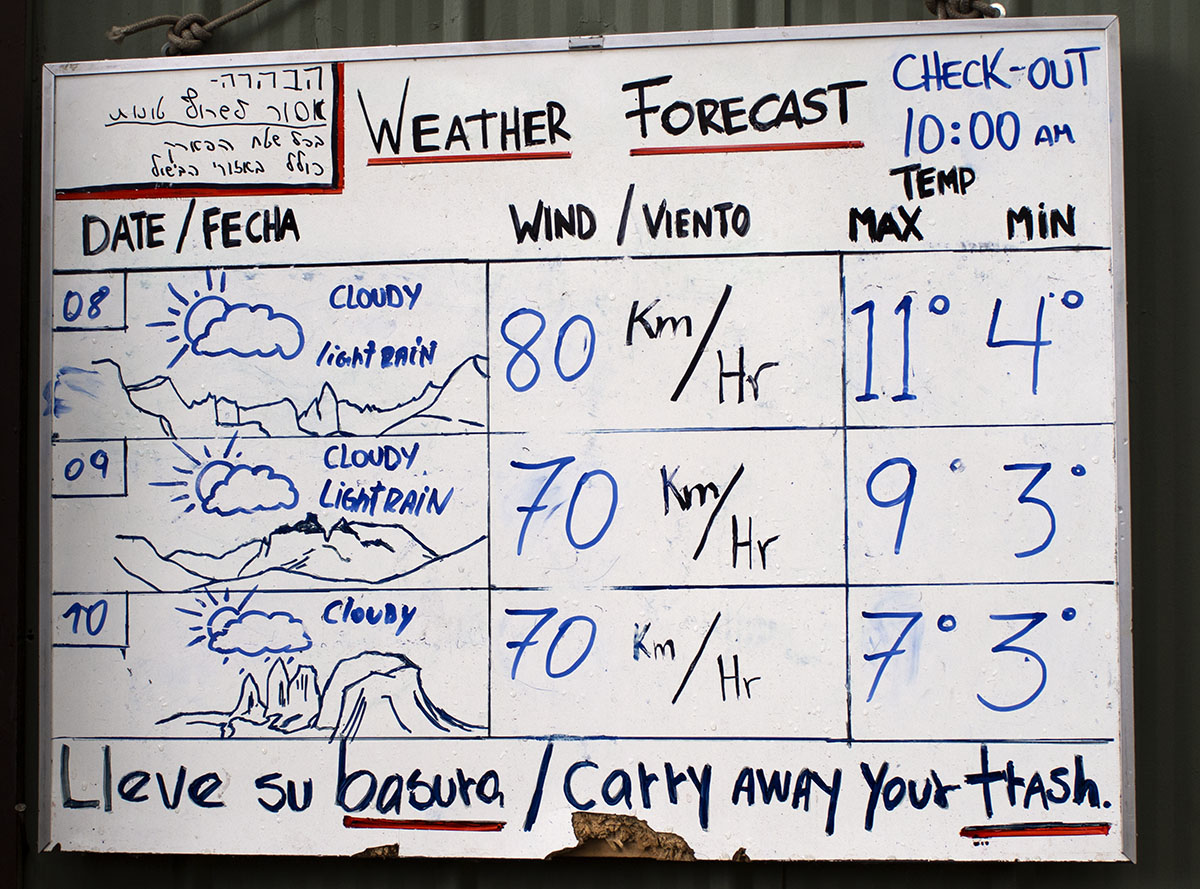 הבהרה-
אסור לשרוף טונות
בכל שטח הפארק
כולל באזורי הבישול
WEATHER FORECAST
CHECK-OUT
10:00 AM
DATE / FECHA
WIND / VIENTO
TEMP
MAX MIN
08
CLOUDY
light RAIN
80 Km/Hr
11° 4°
09
CLOUDY
LIGhtRAIN
70 Km/Hr
9° 3°
10
ClouDY
70 Km/Hr
7° 3°
Lleve su basura / Carry AWAY Your trash.